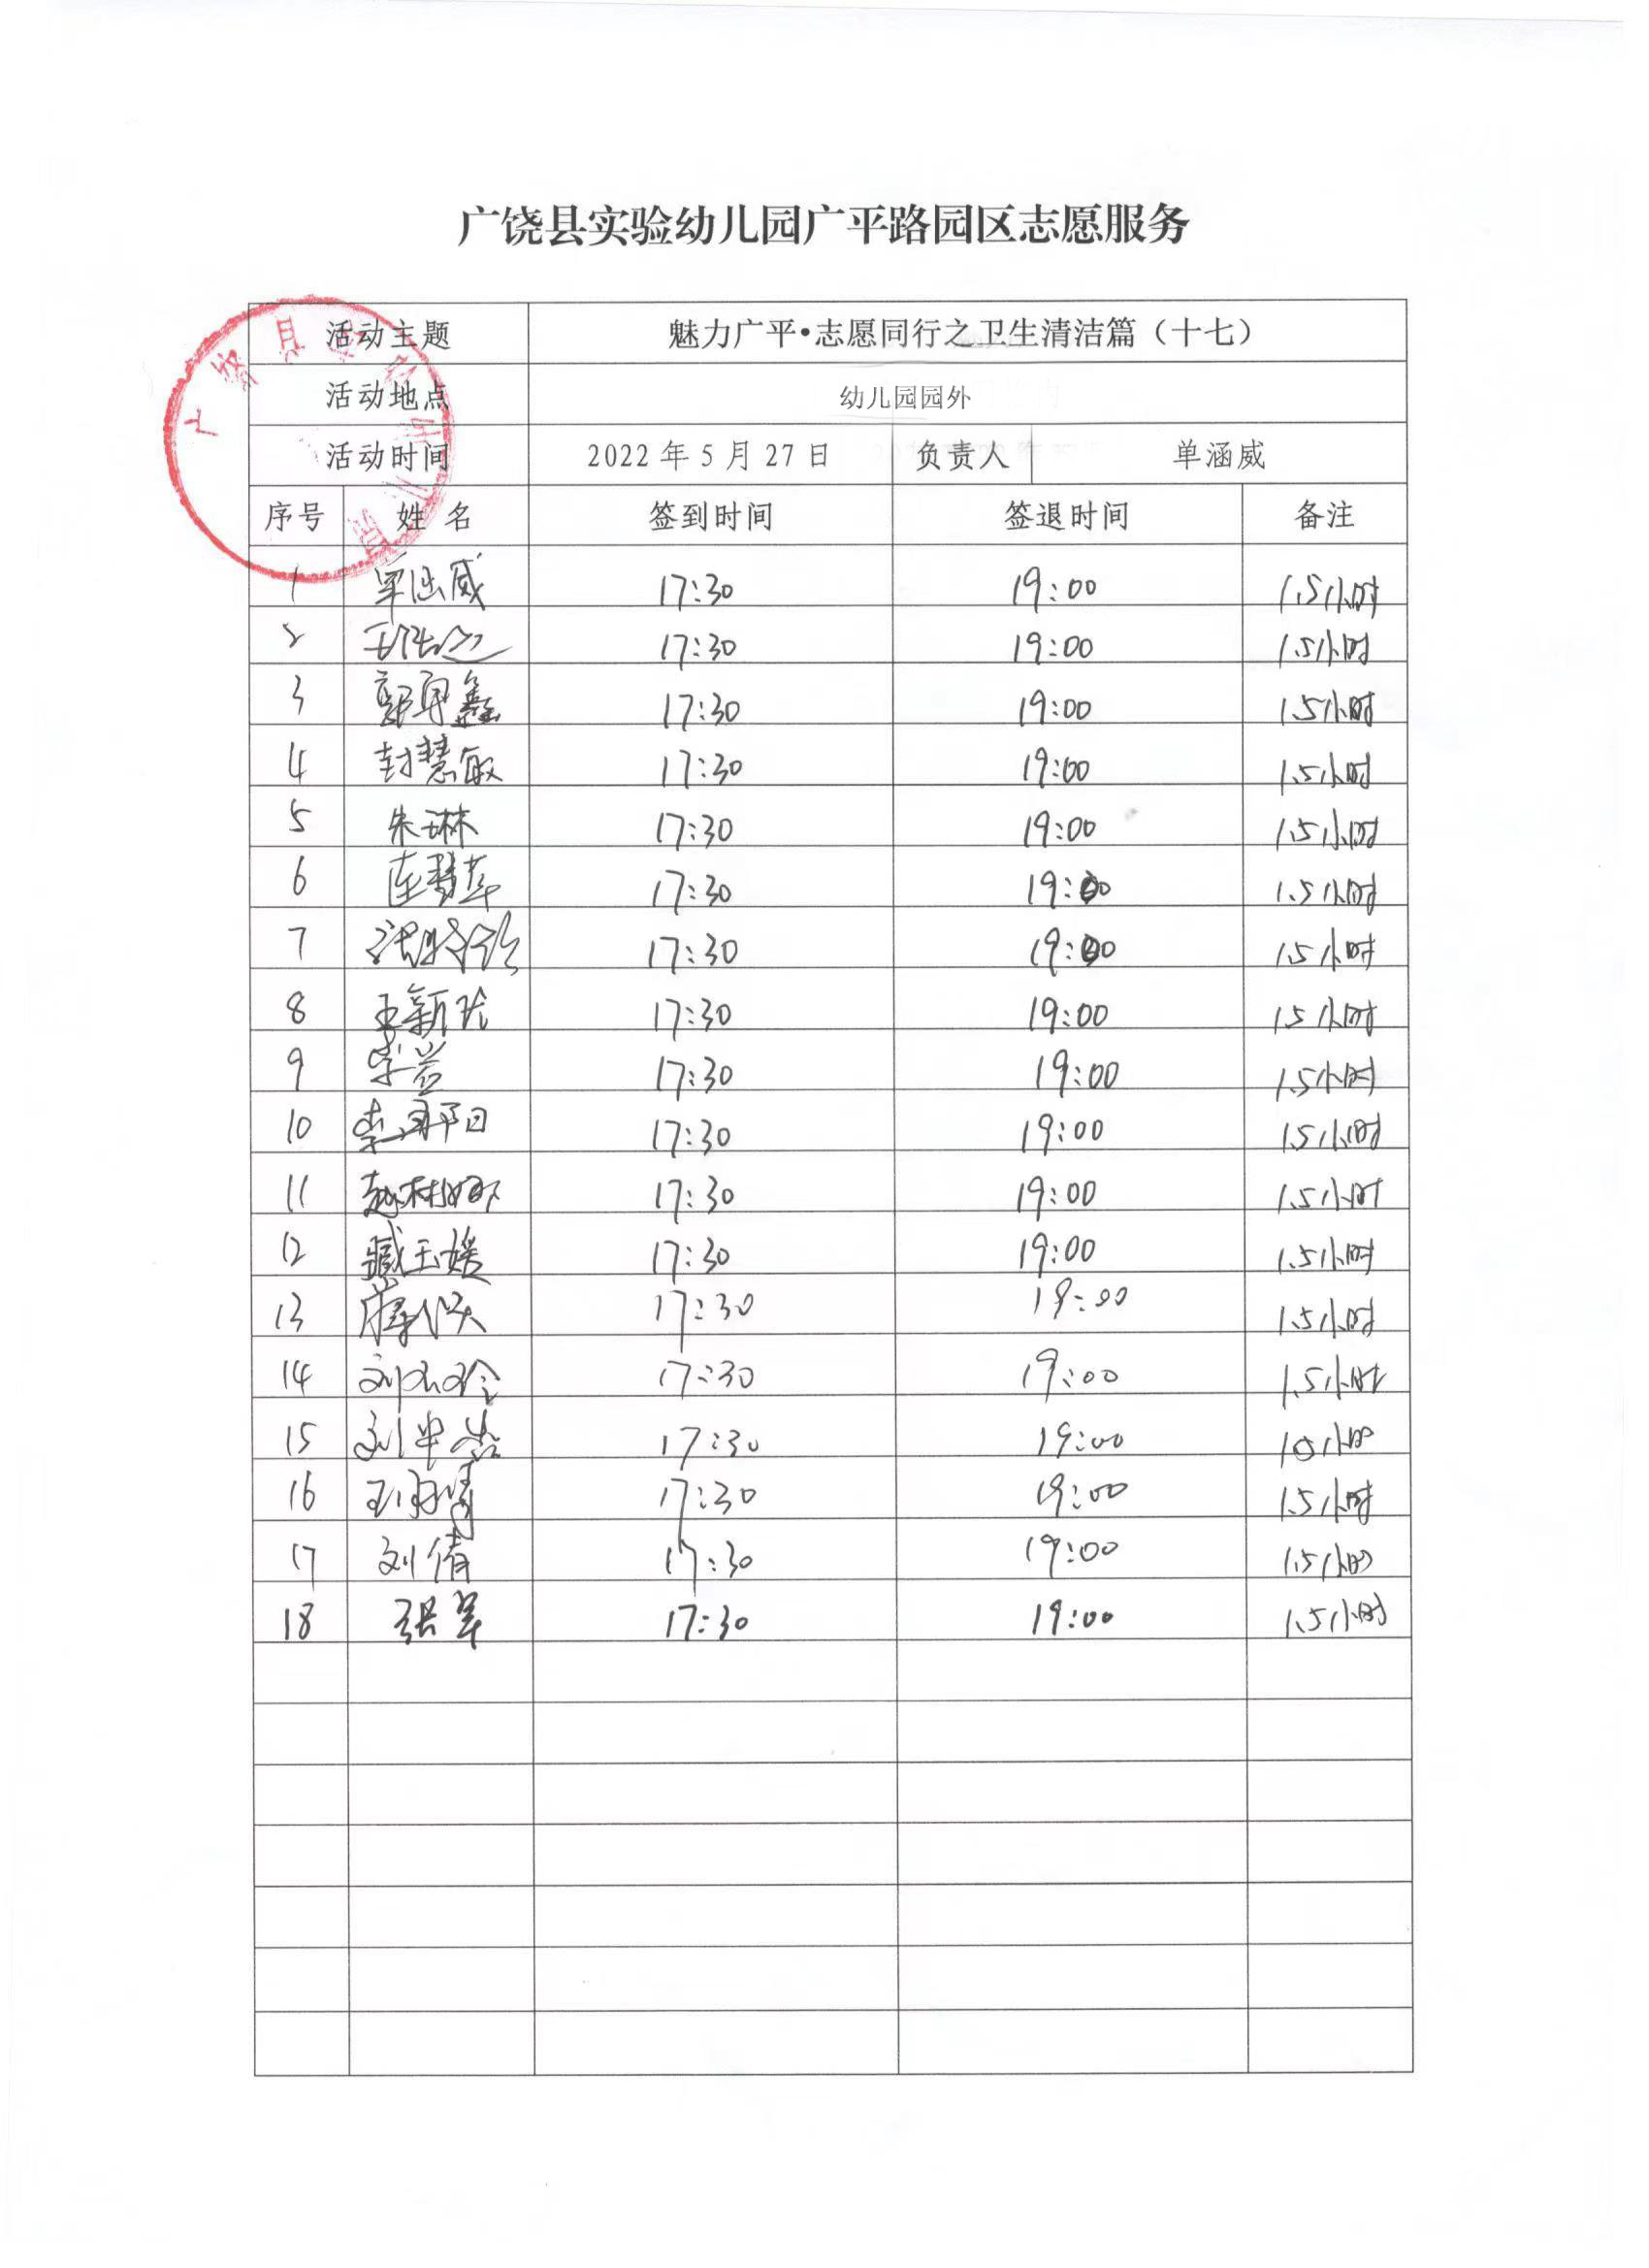 广饶县实验幼儿园广平路园区志愿服务
活动主题 魅力广平•志愿同行之卫生清洁篇（十七）
活动地点 幼儿园园外
活动时间 2022年5月27日 负责人 单涵威
序号 姓名 签到时间 签退时间 备注
1 单涵威 17:30 19:00 1.5小时
2 17:30 19:00 1.5小时
3 鑫 17:30 19:00 1.5小时
4 封慧敏 17:30 19:00 1.5小时
5 朱琳 17:30 19:00 1.5小时
6 连慧萍 17:30 19:00 1.5小时
7 17:30 19:00 1.5小时
8 王新 17:30 19:00 1.5小时
9 李 17:30 19:00 1.5小时
10 李 17:30 19:00 1.5小时
11 赵树娜 17:30 19:00 1.5小时
12 臧玉媛 17:30 19:00 1.5小时
13 17:30 19:00 1.5小时
14 刘 玲 17:30 19:00 1.5小时
15 刘 17:30 19:00 1.5小时
16 王 17:30 19:00 1.5小时
17 刘倩 17:30 19:00 1.5小时
18 张翠 17:30 19:00 1.5小时